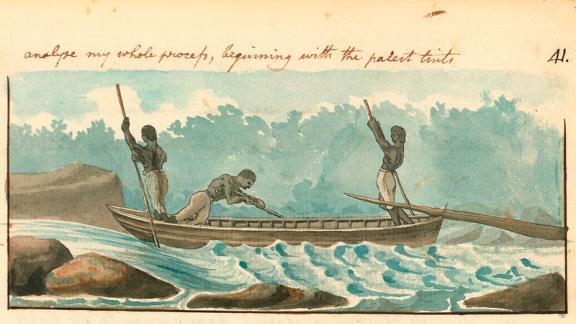 analyse my whole process, beginning with the palest tints
41.